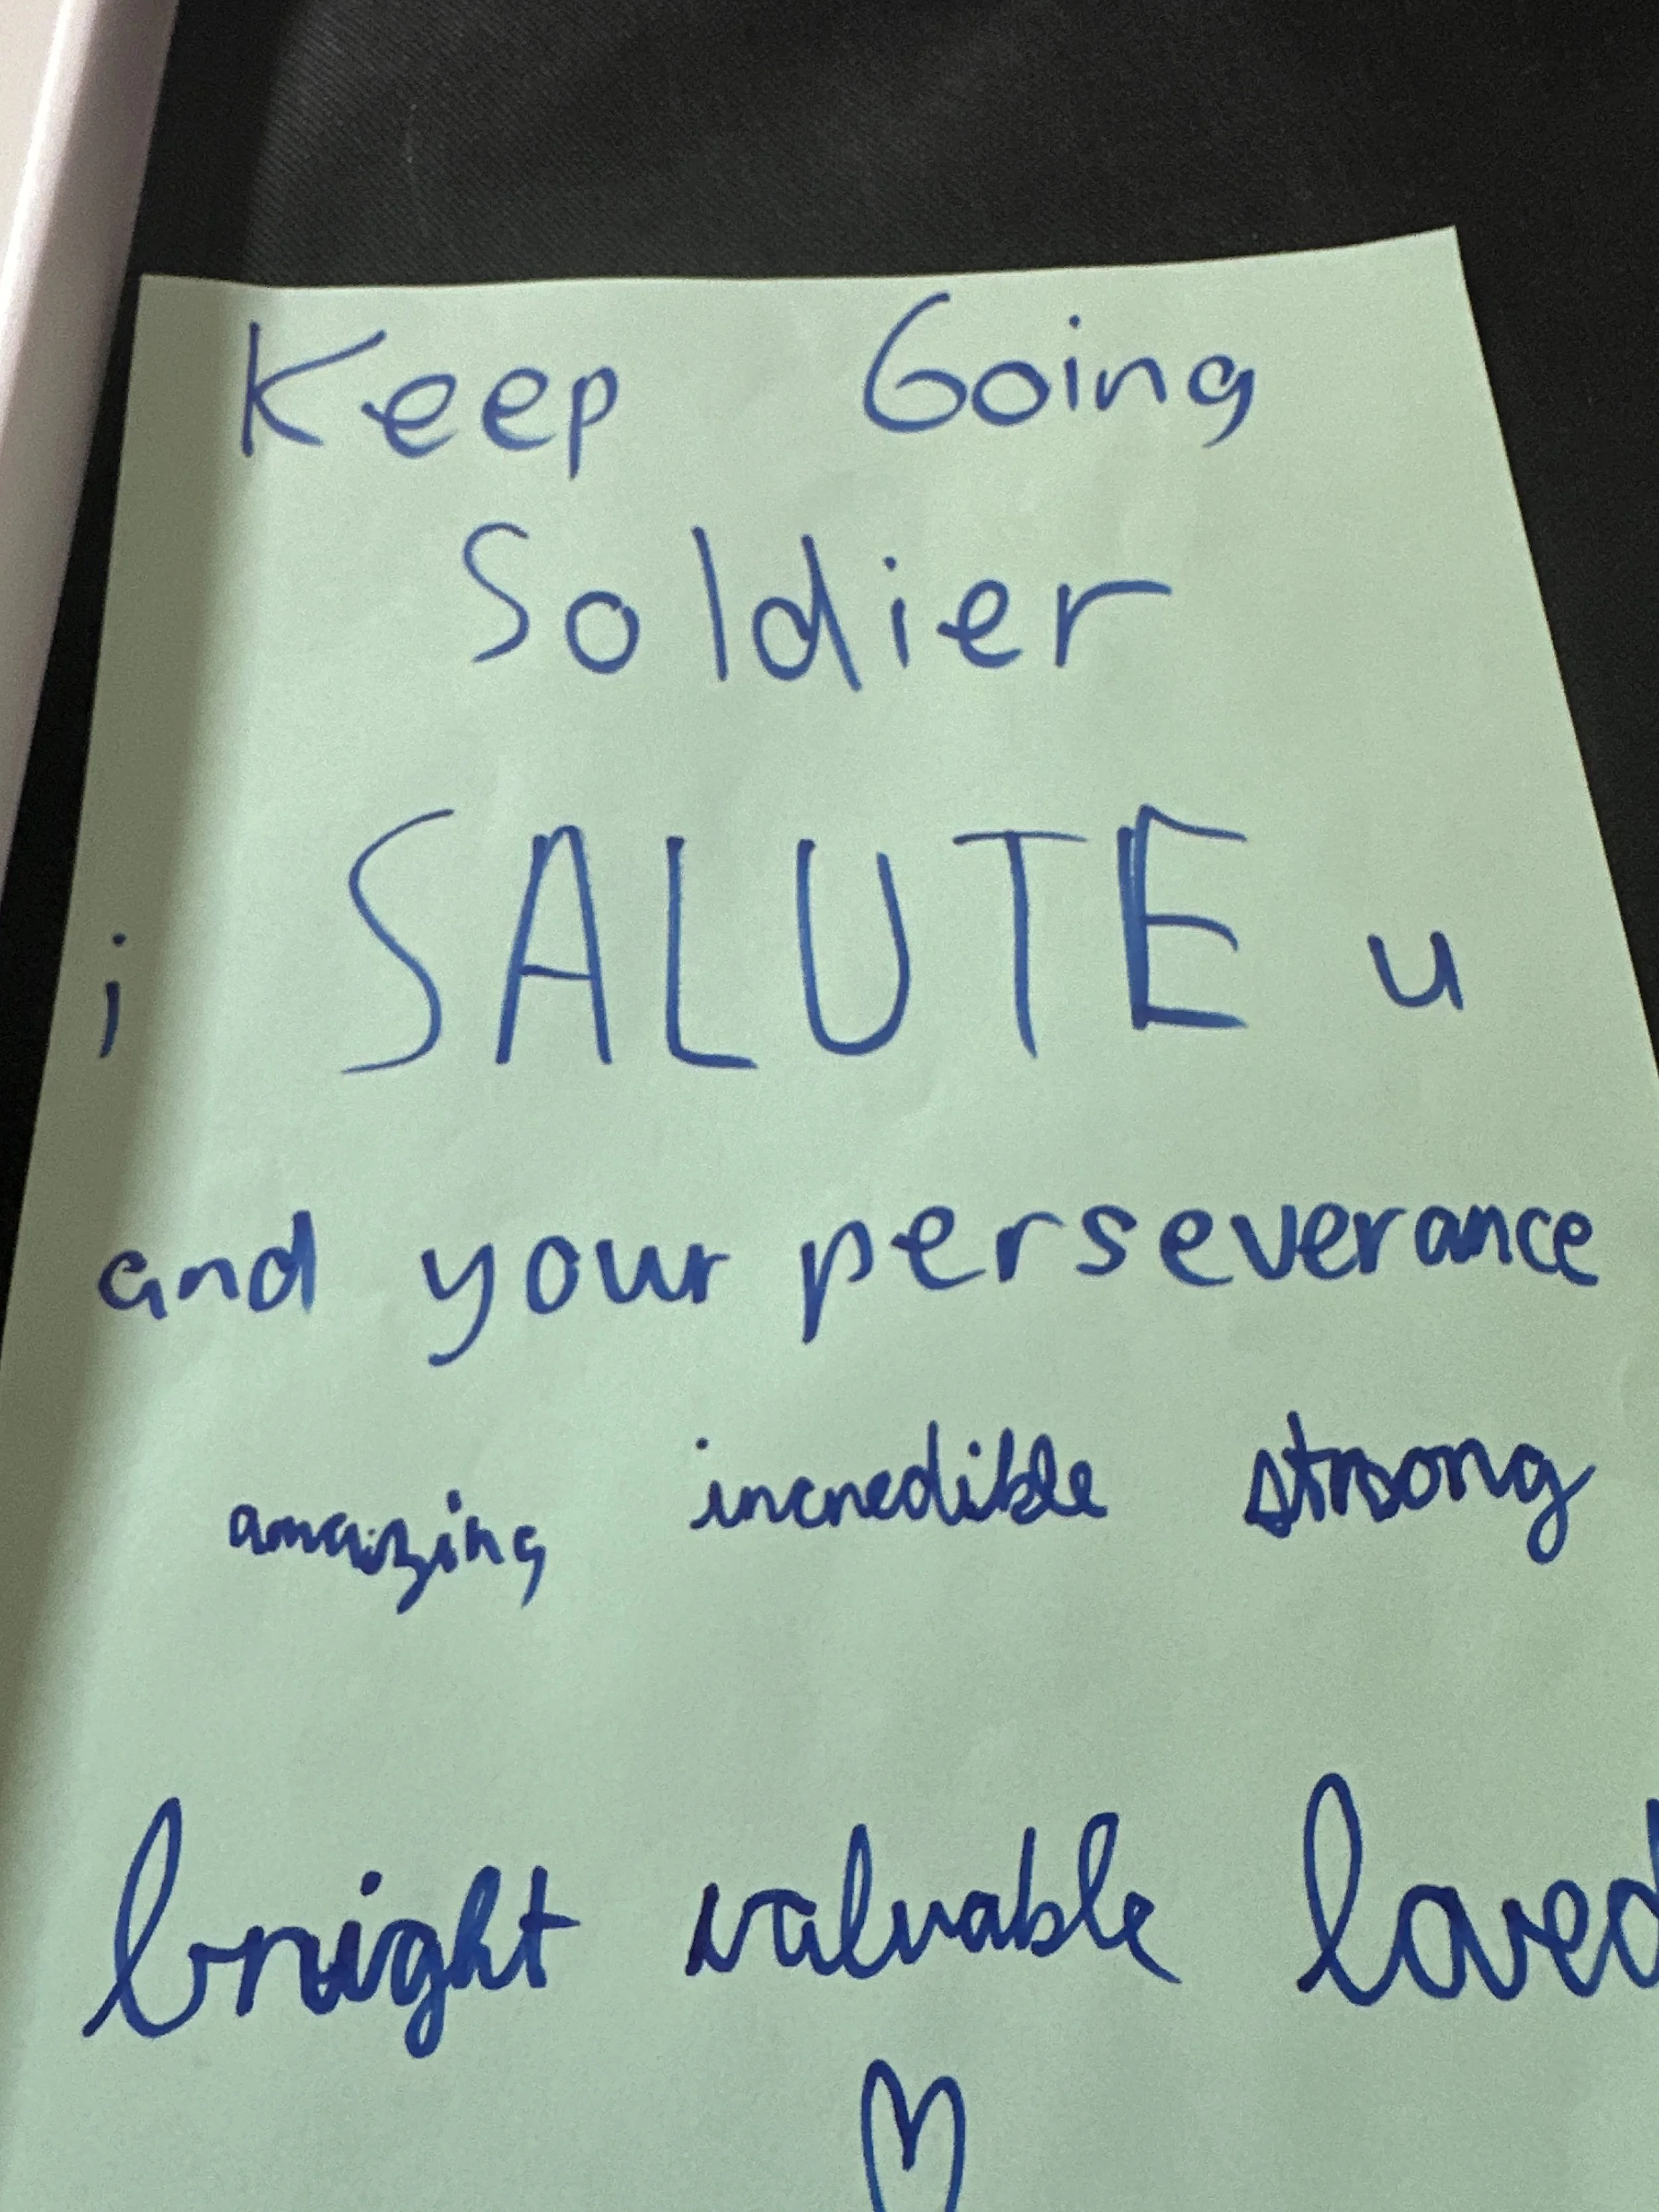 Keep Going
Soldier
i SALUTE u
and your perseverance
amazing incredible strong
bright valuable loved